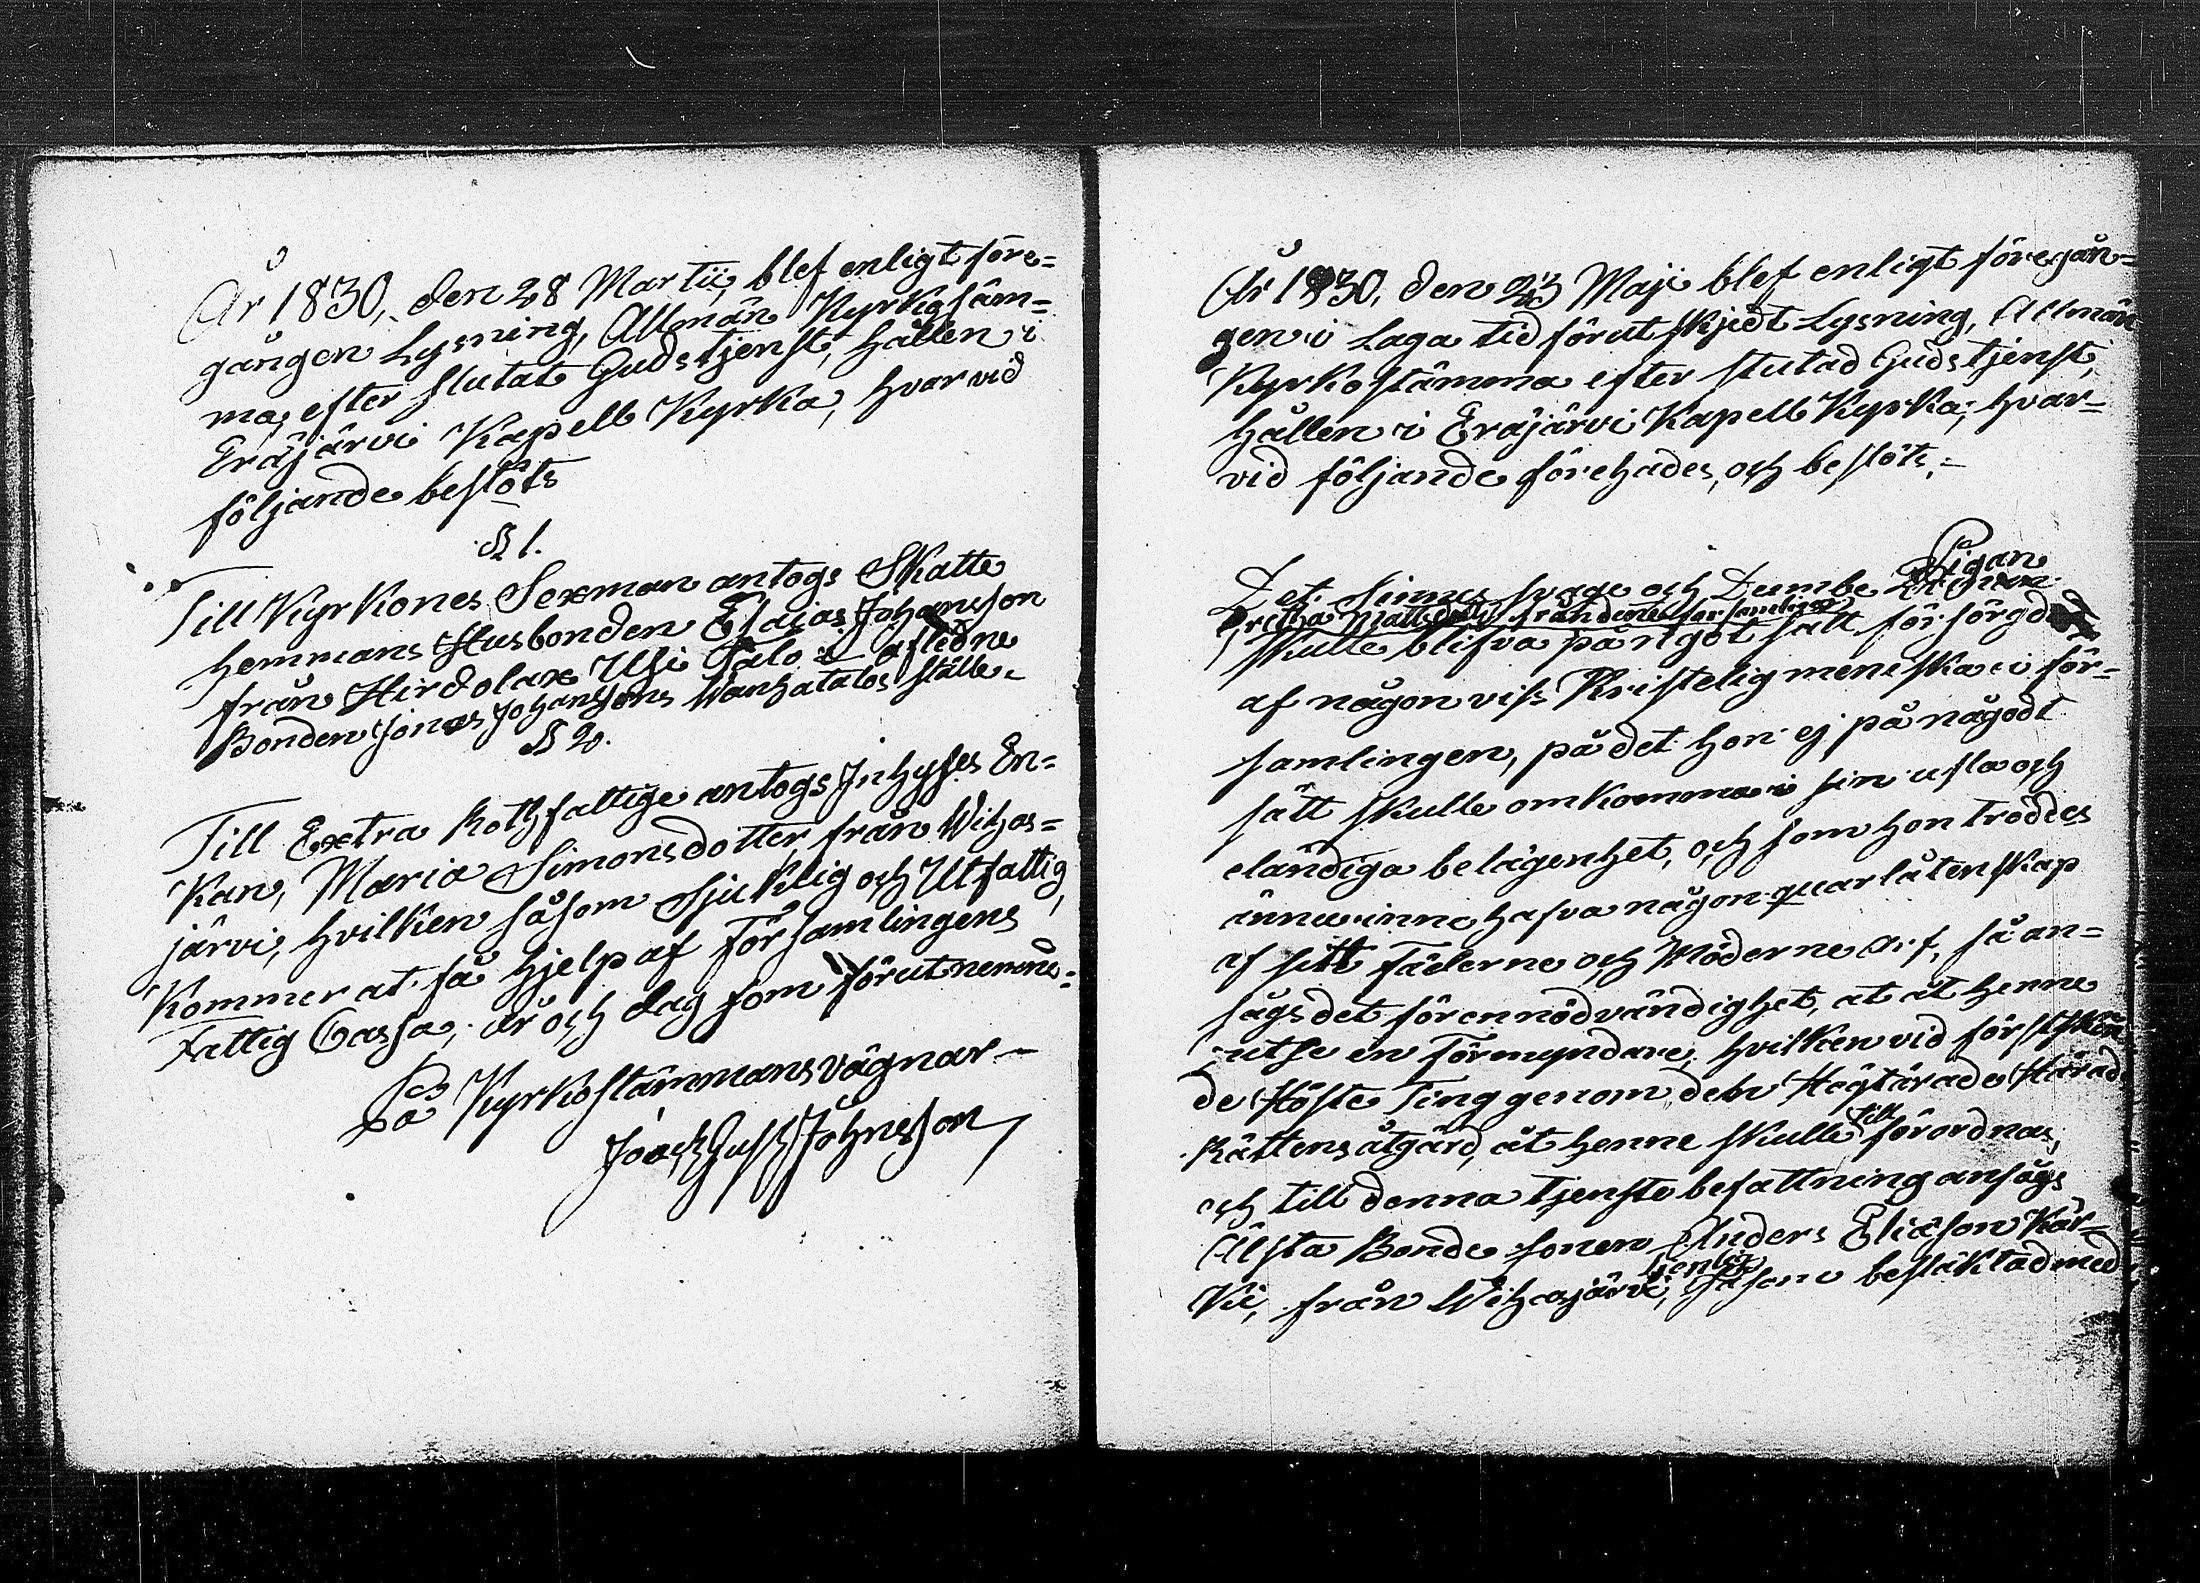 År 1830, den 28 Martii, blef enligt före=
gången Lysning, Allmän Kyrkostäm=
ma, efter slutat Gudstjenst, hållen i
Eräjärvi Kapell Kyrka, hvarvid
följande beslöts
§ 1.
Till Kyrkones Sexman antogs Skatte
hemmans Husbonden Esaias Johansson
från Hirdolax Usi Talo i afledne
Bonden Jonas Johanssons Wanhatalos ställe.
§ 2.
Till Extra Rothfattige antogs Inhyses En=
kan, Maria Simonsdotter, från Wihas=
järvi, hvilken såsom sjuklig och Utfattig,
kommer at få hjelp af Församlingens
Fattig Cassa, år och dag som förutnemne.
På Kyrkostämmans vägnar
Joach Gust Johnsson
År 1830, den 23 Maji blef enligt föregån=
gen i Laga tid förut skjedt Lysning, Allmän
Kyrkostämma efter slutad Gudstjenst,
hållen i Eräjärvi Kapell Kyrka, hvar=
vid följande förehades, och beslöts.=
Pigan
Det Sinnes svage och Dumbe
Gretha Mattsdotter från denne församling
skulle blifva på något sätt försörgd
af någon viss Kristelig meniska i för=
samlingen, på det hon ej på någodt
sätt skulle omkomma i sin usla och
eländiga belägenhet, och som hon troddes
ännu innehafva någon quarlåtenskap
af sitt Fäderne och Möderne Arf, så an=
sågs det för en nödvändighet, at åt henne
utse en Förmyndare, hvilken vid först skien
de Höste Ting genom den Högtärade Härads
Rättens åtgärd, åt henne skulle till förordnas,
och till denna tjenste befattning ansågs
Älsta Bonde sonen Anders Eliæson Kär=
ki, från Wihasjärvi, tjenlig såsom besläktad med